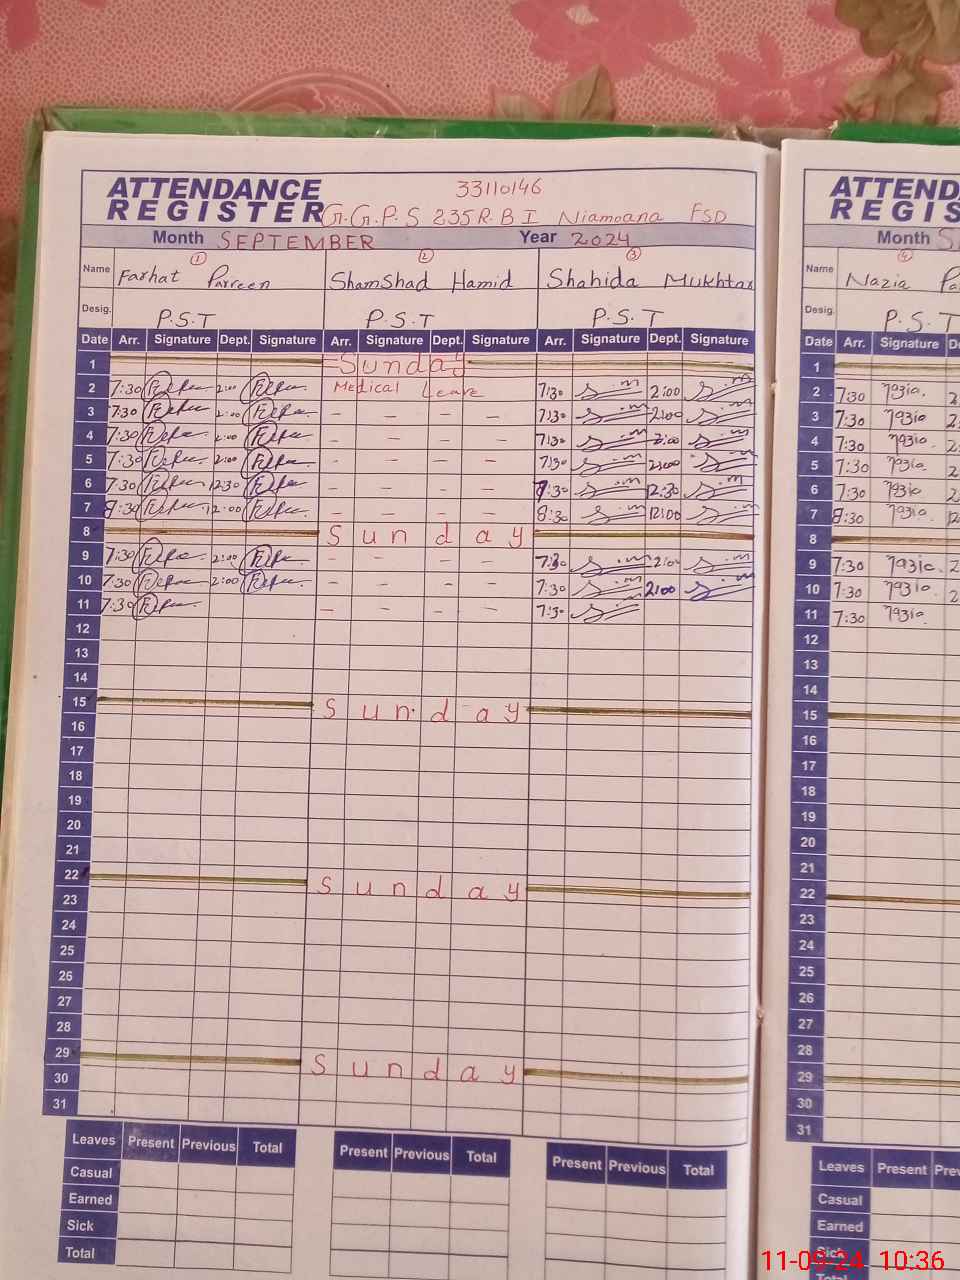 ATTENDANCE 33110146
REGISTER G.G.P.S 235 R.B I Niamoana FSD
Month SEPTEMBER Year 2024
① ② ③
Name Farhat Parveen Shamshad Hamid Shahida Mukhtar
Desig. P.S.T P.S.T P.S.T
Date Arr. Signature Dept. Signature Arr. Signature Dept. Signature Arr. Signature Dept. Signature
1 Sunday
2 7:30 2:00 Medical Leave 7:30 2:00
3 7:30 2:00 - - - - 7:30 2:00
4 7:30 2:00 - - - - 7:30 2:00
5 7:30 2:00 - - - - 7:30 2:00
6 7:30 12:30 - - - - 7:30 12:30
7 8:30 12:00 - - - - 8:30 12:00
8 Sunday
9 7:30 2:00 - - - - 7:30 2:00
10 7:30 2:00 - - - - 7:30 2:00
11 7:30 - - - - 7:30
12
13
14
15 Sunday
16
17
18
19
20
21
22 Sunday
23
24
25
26
27
28
29 Sunday
30
31
Leaves Present Previous Total Present Previous Total Present Previous Total
Casual
Earned
Sick
Total
ATTEND
REGIS
Month S
④
Name Nazia Pa
Desig. P.S.T
Date Arr. Signature De
1
2 7:30 2
3 7:30 2:
4 7:30 2:
5 7:30 2
6 7:30 2
7 8:30 12
8
9 7:30 2
10 7:30 2
11 7:30
12
13
14
15
16
17
18
19
20
21
22
23
24
25
26
27
28
29
30
31
Leaves Present Prev
Casual
Earned
Sick
Total
11-09-24 10:36